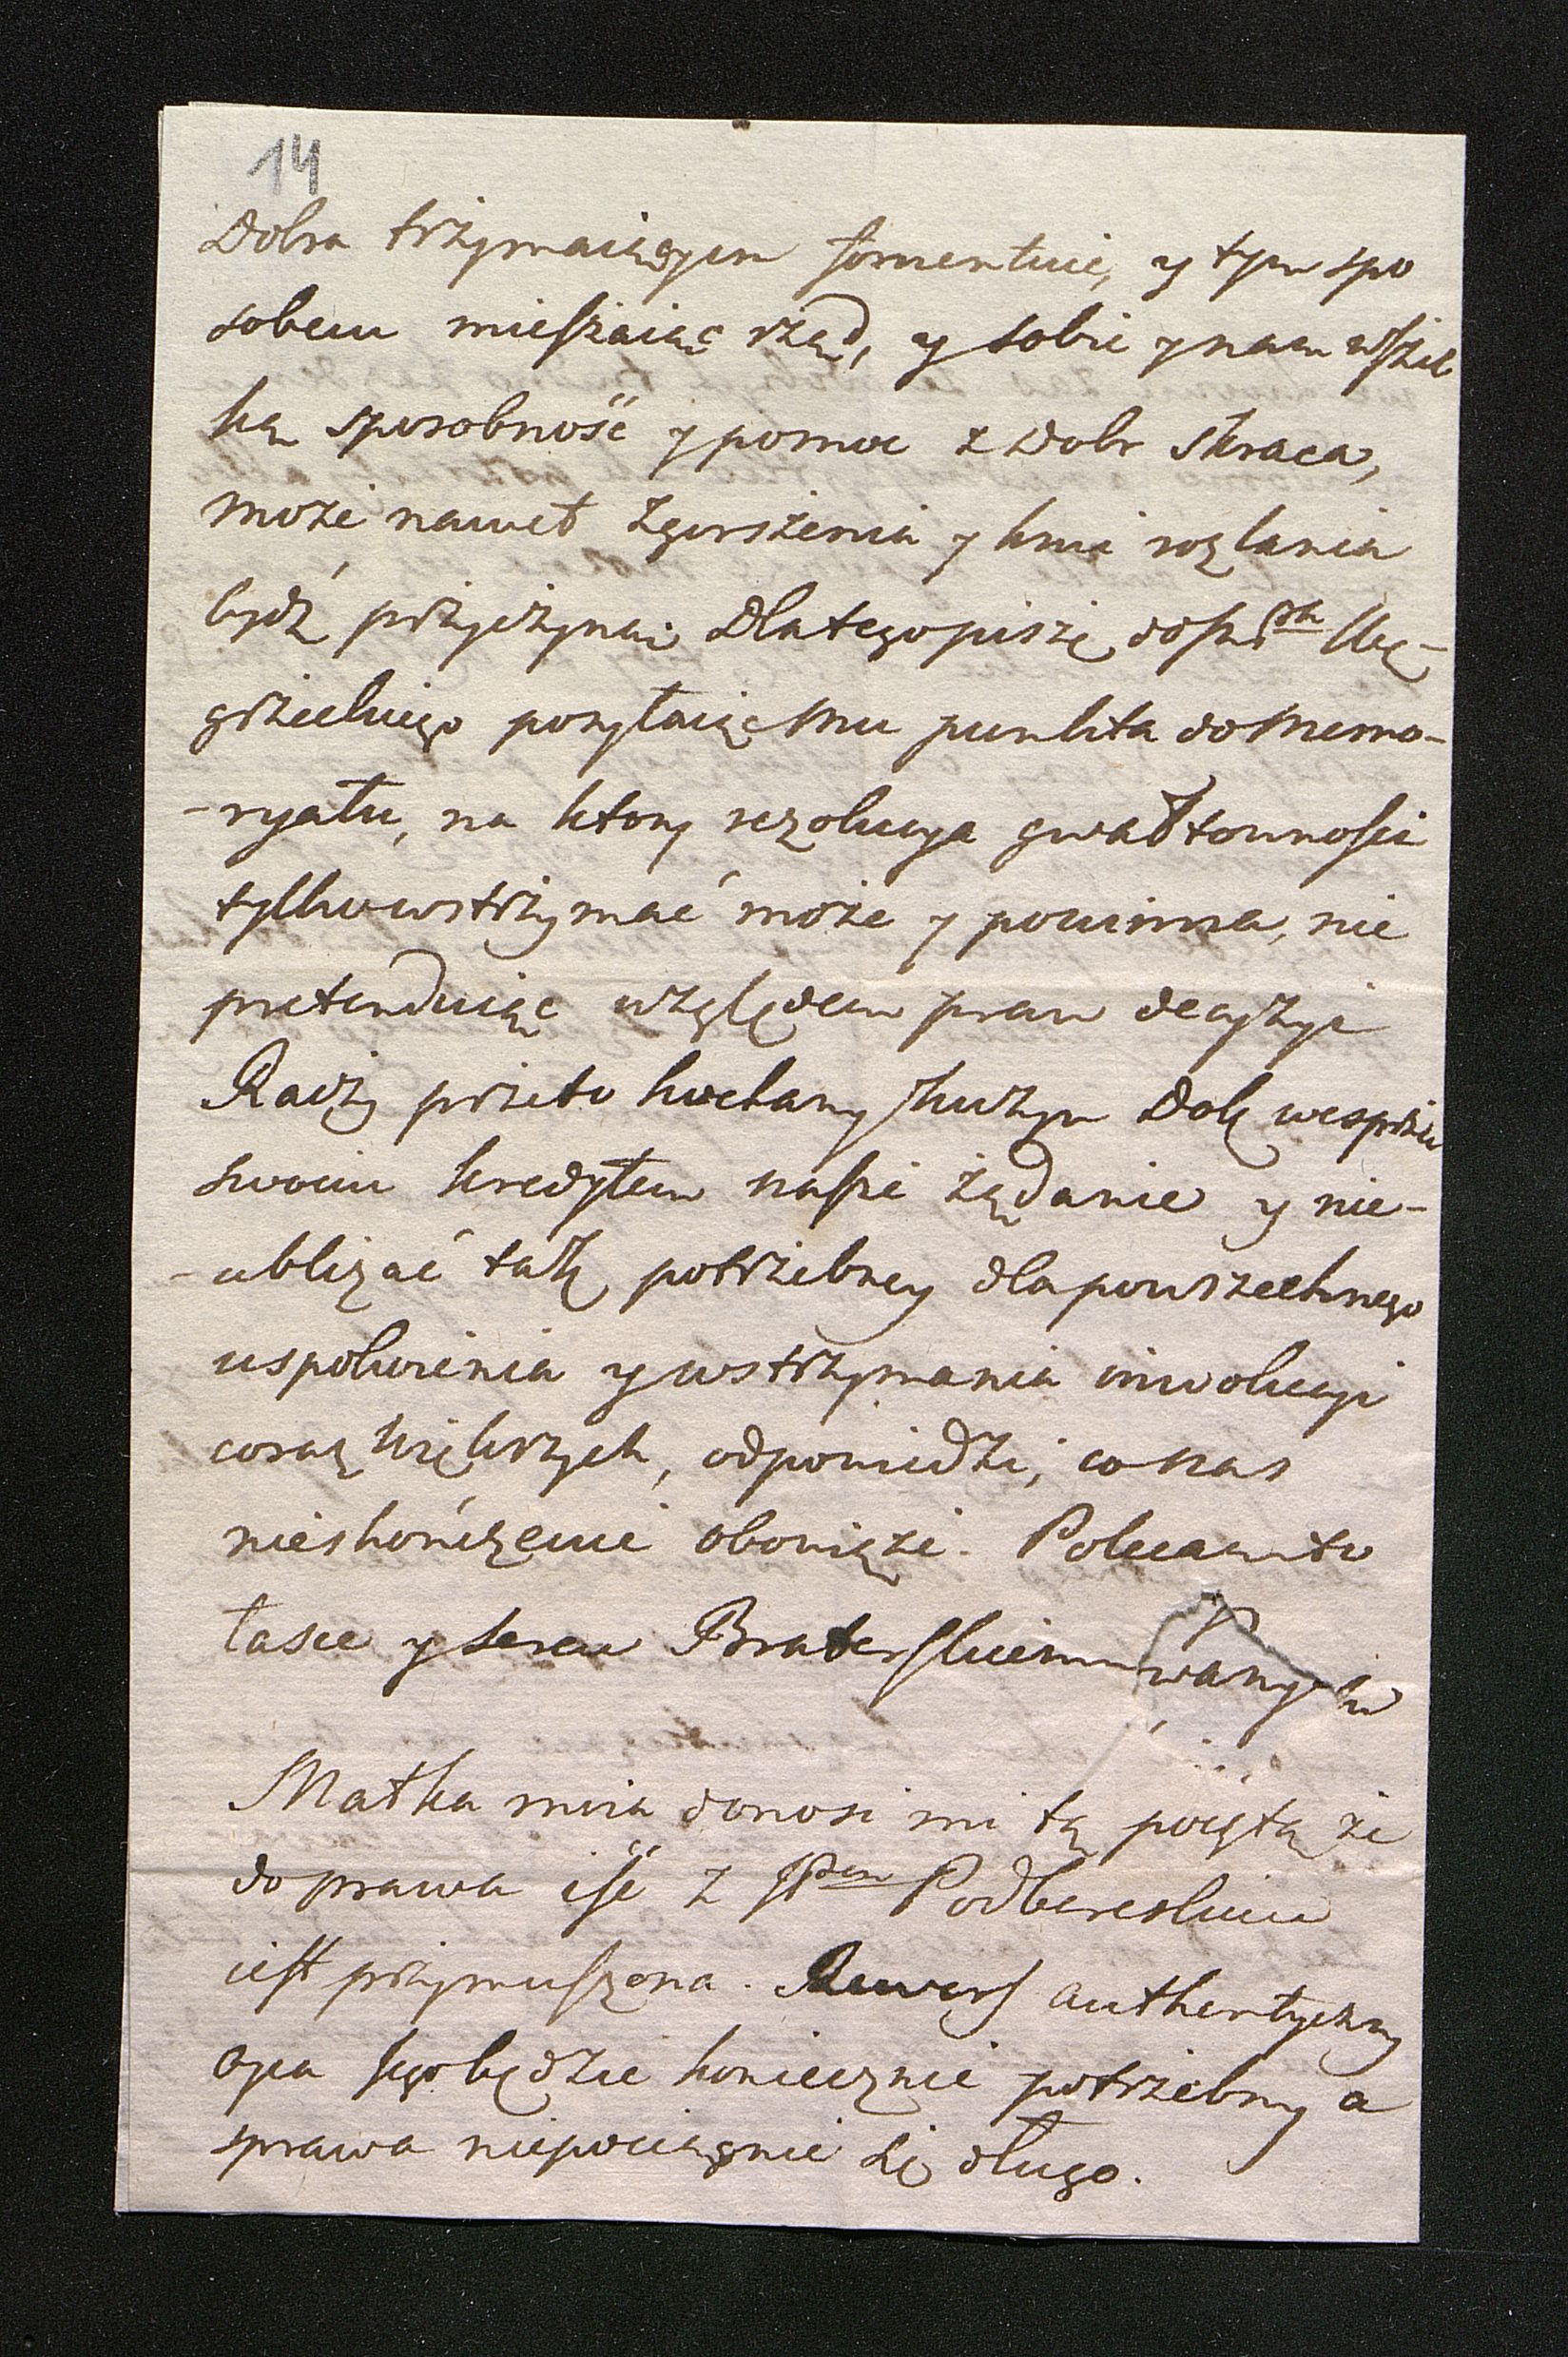 14
Dobra trzymaiącym fomentuie, y tym spo
sobem mieszaiąc rząd, y sobie y nam wszel
ką sposobność y pomoc z Dobr skraca,
może nawet zgorszenia y krwi rozlania
bydź przyczyną. Dlatego piszę do JP Wę-
grzeckiego posyłaiąc Mu punkta do Memo-
-ryału, na ktory rezolucya gwałtowności
tylko wstrzymać może y powinna, nie
pretenduiąc względem praw decyzyi
Radzy przeto kochany Kuzyn Dob wesprzeć
swoim kredytem nasze żądanie y nie-
-ubliżać tak potrzebney dla powszechnego
uspokoienia y wstrzymania inwolucyi
coraz większych, odpowiedzi, co nas
nieskończenie obowiąże. Polecam to
łasce y sercu Braterskiemu
Matka moia donosi mi tą pocztą że
do prawa iść z JPem Podbereskim
iest przymuszona. Rewers authentyczny
Oyca Jego będzie koniecznie potrzebny a
sprawa niepociągnie się długo.